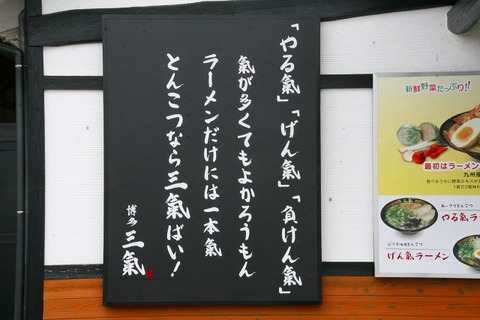 「やる氣」「げん氣」「負けん氣」
氣が多くてもよかろうもん
ラーメンだけには一本氣
とんこつなら三氣ばい！
博多 三氣
新鮮野菜たっぷり!!
最初はラーメン
九州産
あっさりとんこつ
やる氣ラ
げん氣ラーメン